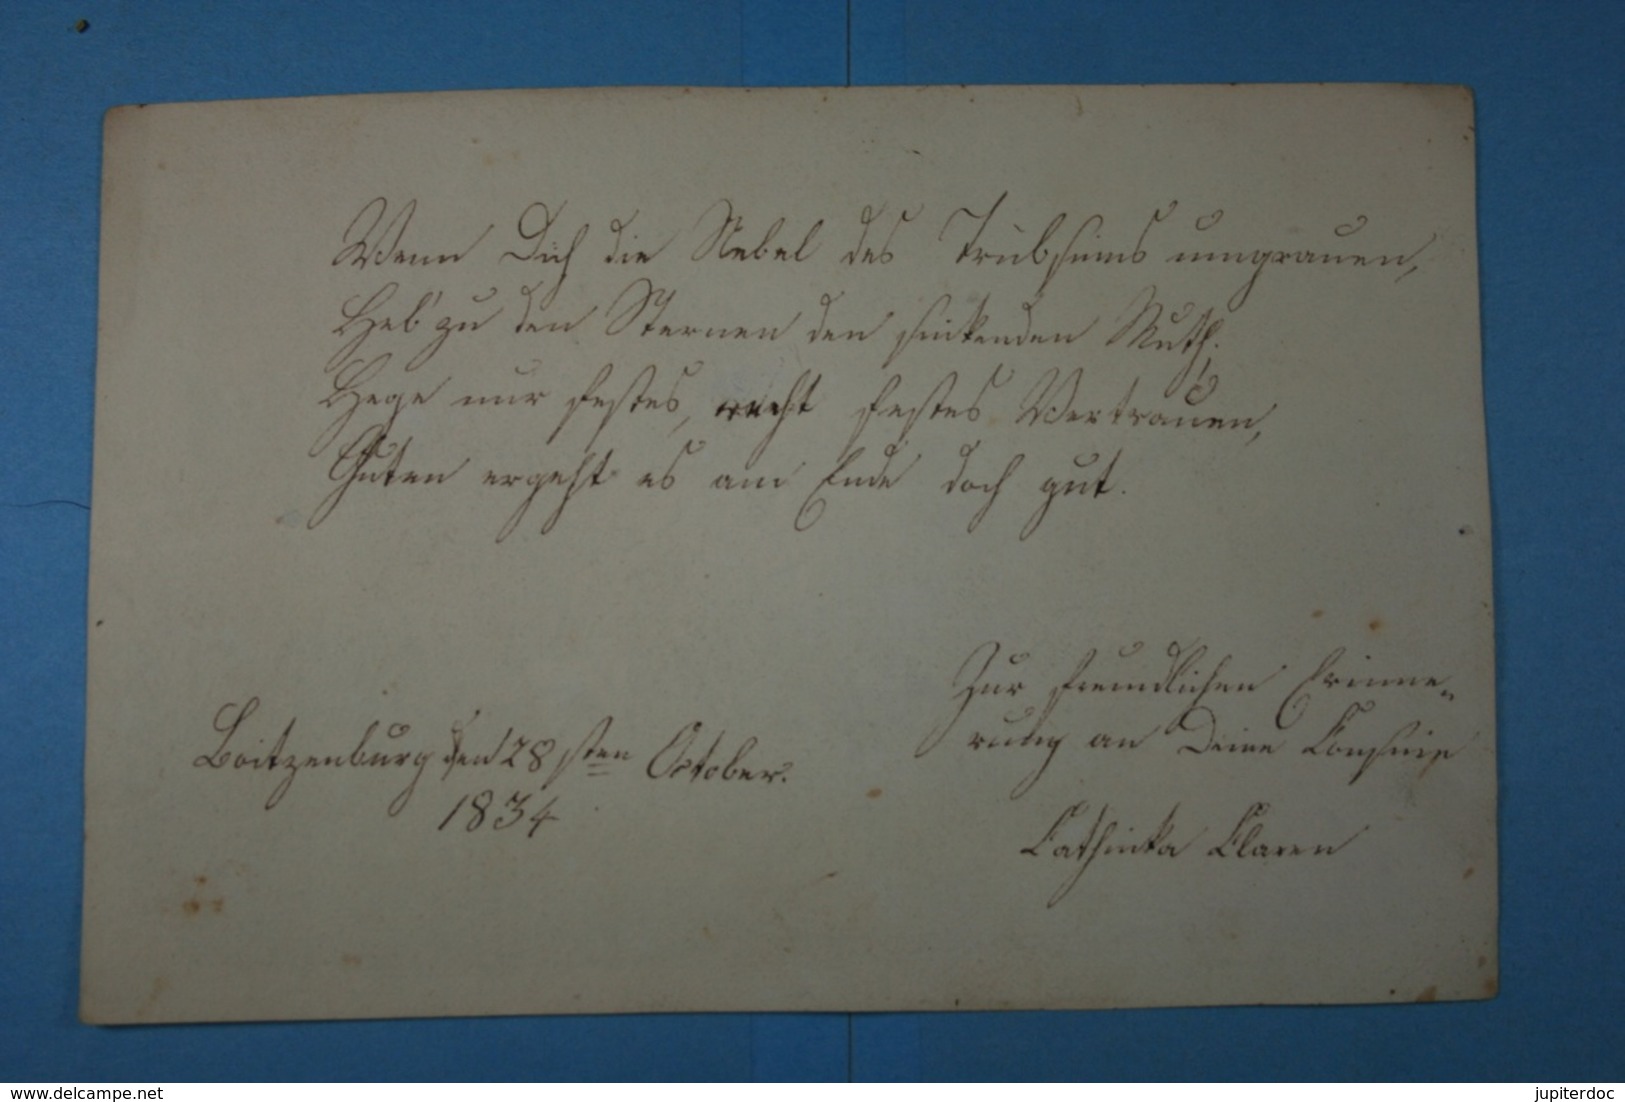 Wenn Dich die Nebel des Trübsinns umgrauen,
Heb' zu den Sternen den sinkenden Muth;
Hege nur festes, recht festes Vertrauen,
Guten ergeht es am Ende doch gut.
Zur freundlichen Erinne-
rung an Deine Cousine
Boitzenburg den 28sten October.
1834
Cathinka Claren
www.delcampe.net
jupiterdoc